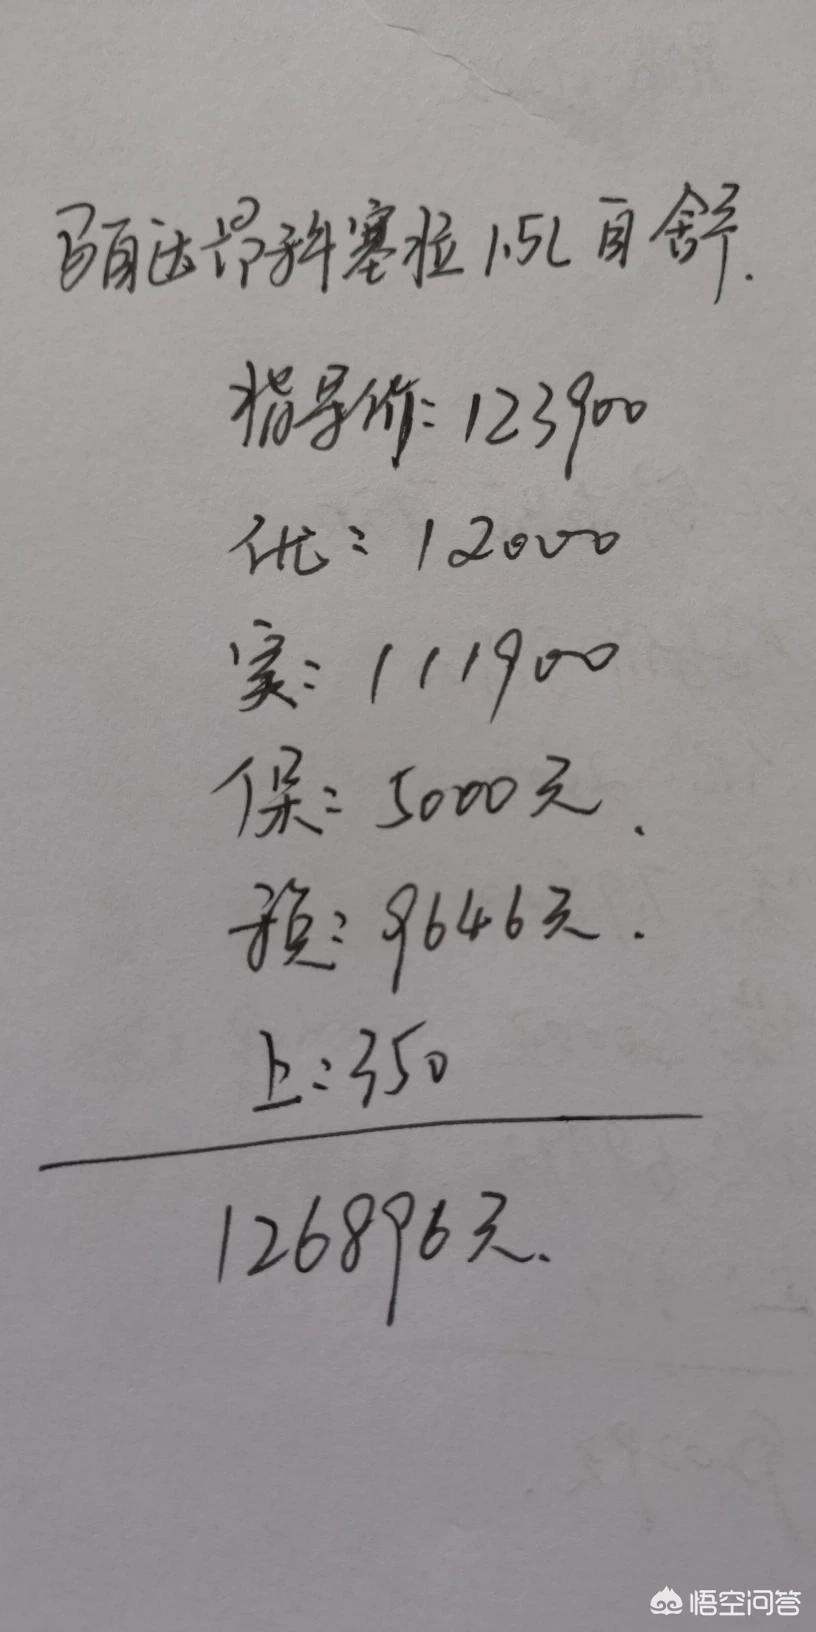 马自达昂科塞拉1.5L自舒.
指导价:123900
优:12000
实:111900
保:5000元.
税:9646元.
上:350
126896元.
悟空问答